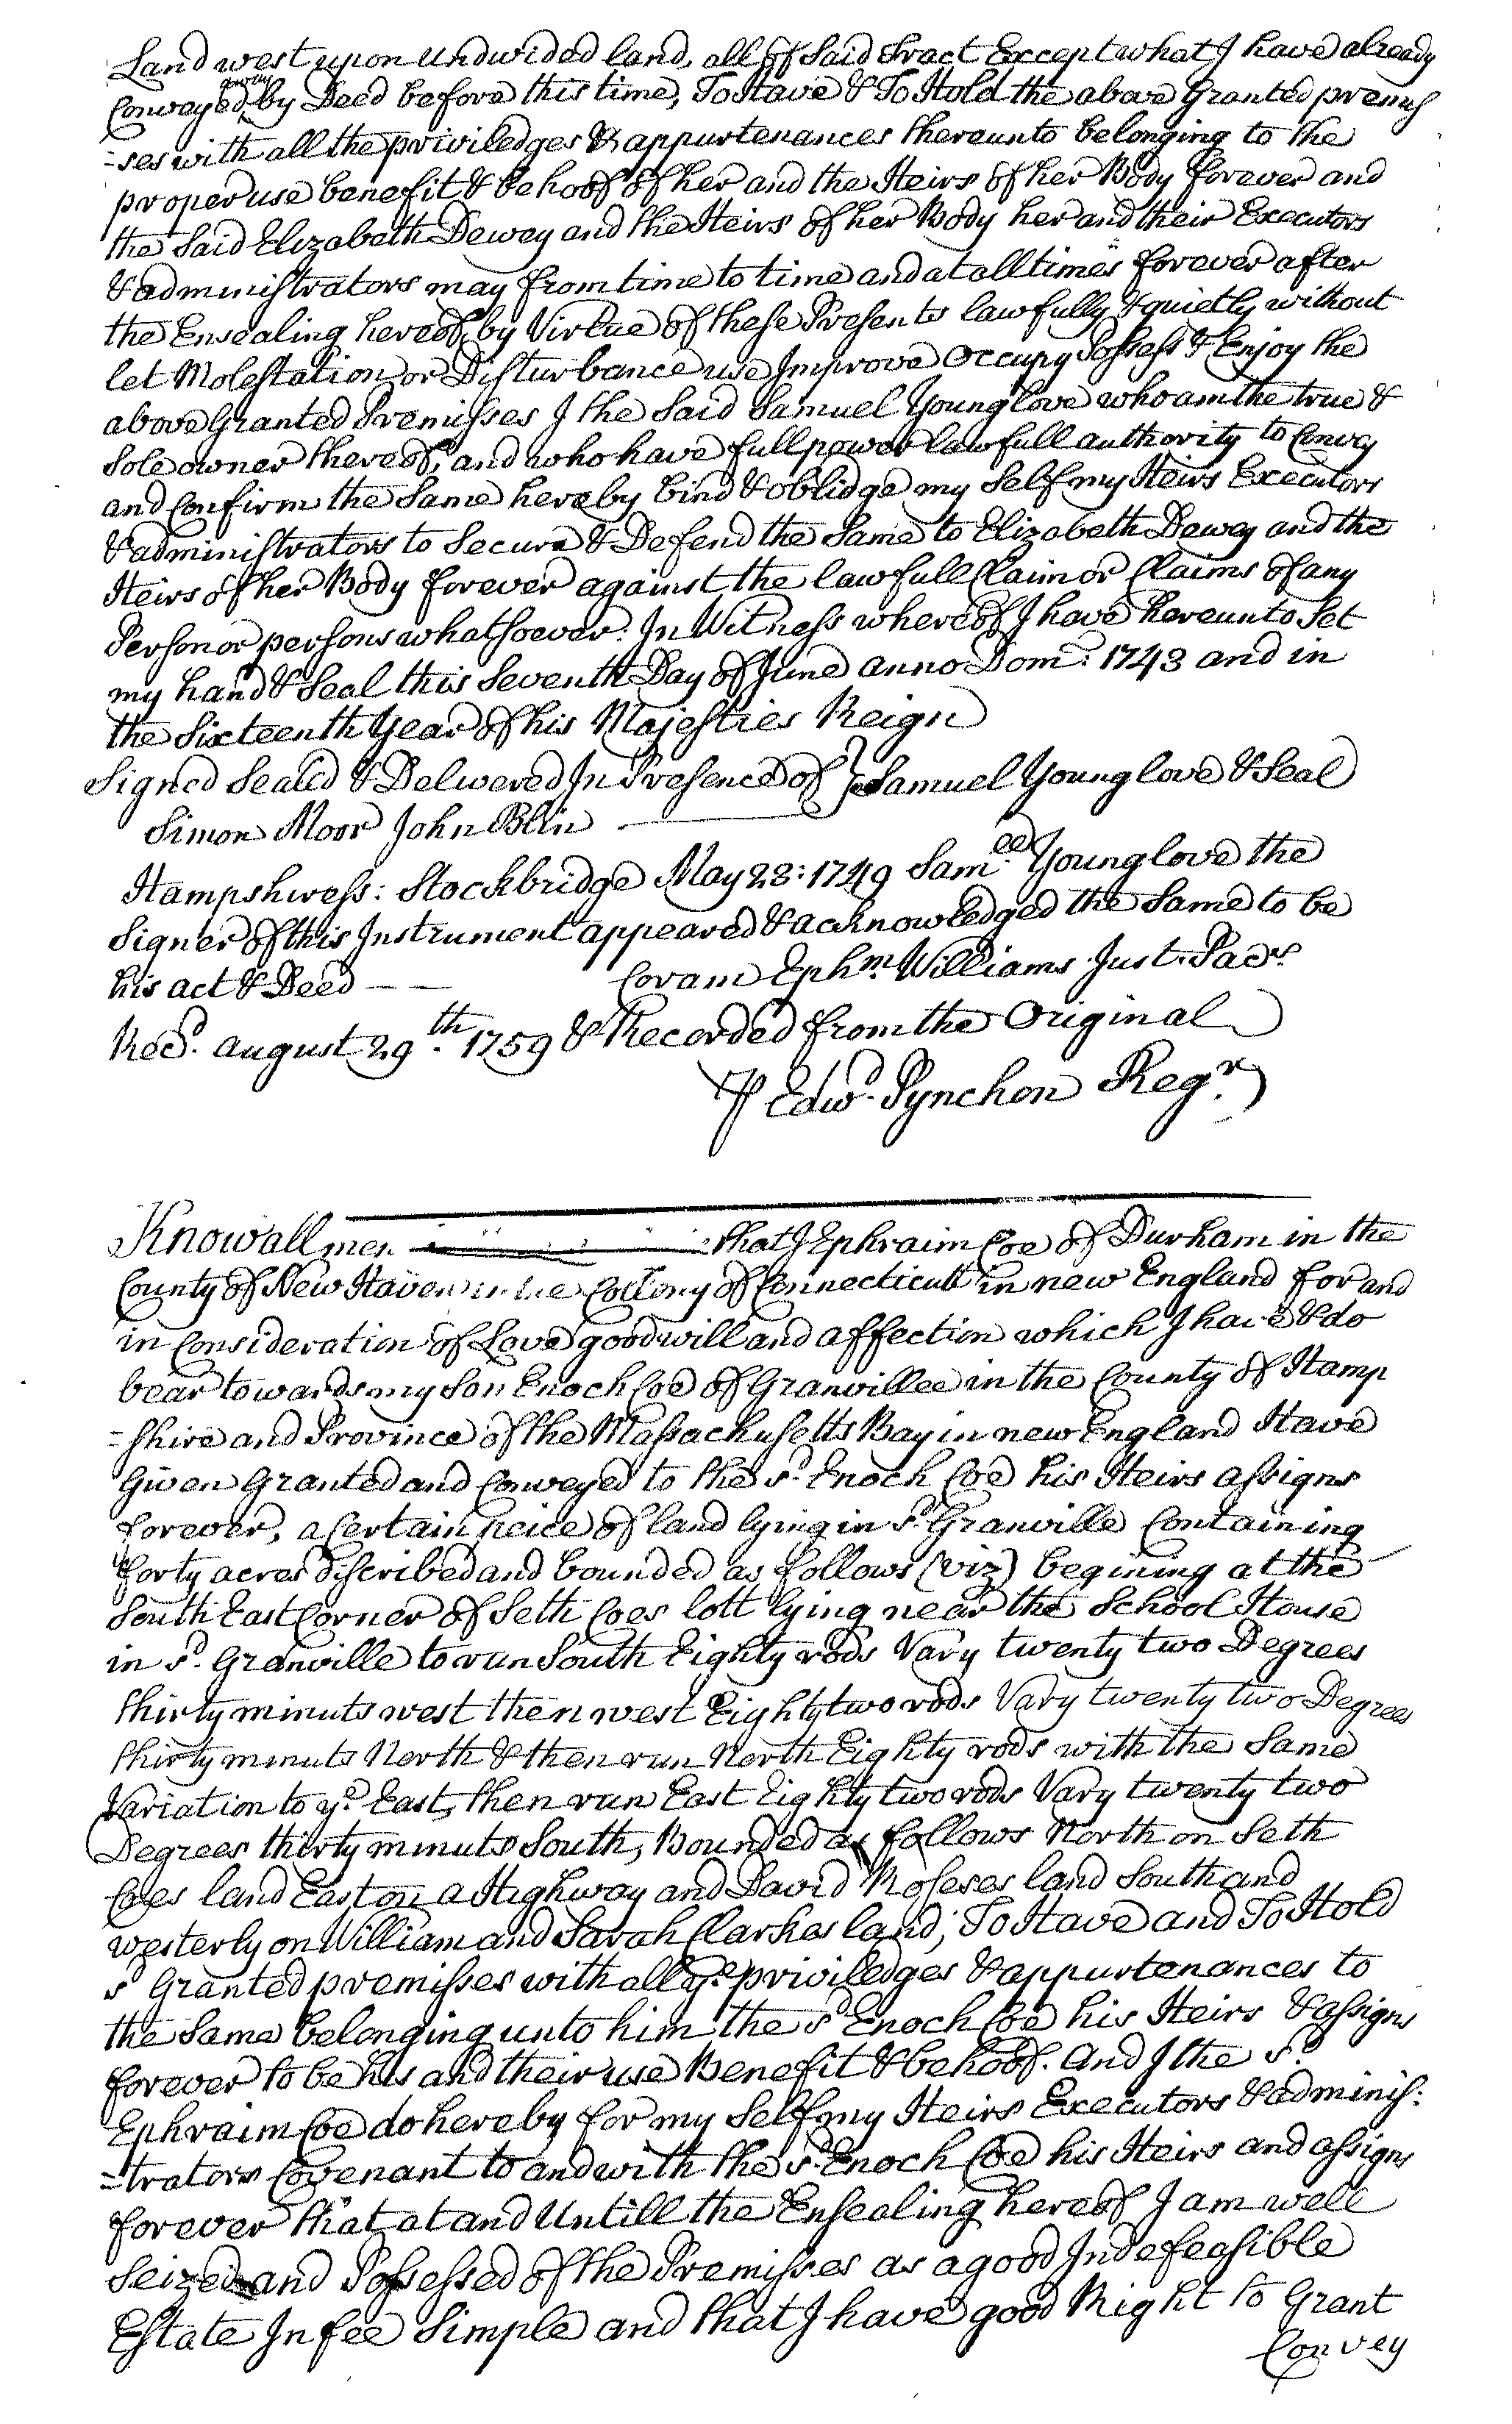 Land west upon undivided land, all of Said Tract Except what I have already
Conveyed away by Deed before this time, To Have & To Hold the above Granted premis
=ses with all the priviledges & appurtenances thereunto belonging to the
proper use benefit & behoof of her and the Heirs of her Body forever and
the Said Elizabeth Dewey and the Heirs of her Body her and their Executors
& administrators may from time to time and at all times forever after
the Ensealing hereof, by Virtue of these Presents lawfully & quietly without
let Molestation or Disturbance use Improve Occupy Possess & Enjoy the
above Granted Premisses I the Said Samuel Younglove who am the true &
Sole owner thereof, and who have full power lawfull authority to Convey
and Confirm the Same hereby bind & oblidge my Self my Heirs Executors
& administrators to Secure & Defend the Same to Elizabeth Dewey and the
Heirs of her Body forever against the lawfull Claim or Claims of any
Person or persons whatsoever: In Witness whereof I have hereunto Set
my hand & Seal this Seventh Day of June anno Dom: 1743 and in
the Sixteenth Year of his Majesties Reign
Signed Sealed & Delivered In Presence of } Samuel Younglove & Seal
Simon Moor John Blin
Hampshire ss: Stockbridge May 23: 1749 Samll Younglove the
Signer of this Instrument appeared & acknowledged the Same to be
his act & Deed — — Coram Ephm. Williams Just. Pacs
Recd. august 29th. 1759 & Recorded from the Original
P Edwd. Pynchon Regr.
Know all men that I Ephraim Coe of Durham in the
County of New Haven in the Collony of Connecticutt in new England for and
in Consideration of Love goodwill and affection which I have & do
bear towards my Son Enoch Coe of Granvillee in the County of Hamp
=shire and Province of the Massachusetts Bay in new England Have
Given Granted and Conveyed to the sd. Enoch Coe his Heirs assigns
forever, a Certain peice of land lying in sd. Granville Containing
forty acres discribed and bounded as follows (viz) begining at the
South East Corner of Seth Coes lott lying near the School House
in sd. Granville to run South Eighty rods Vary twenty two Degrees
thirty minuts west then west Eighty two rods Vary twenty two Degrees
thirty minuts North & then run North Eighty rods with the Same
Variation to ye. East, then run East Eighty two rods Vary twenty two
Degrees thirty minuts South, Bounded as follows North on Seth
Coes land East on a Highway and David Moseses land South and
westerly on William and Sarah Clarkes land; To Have and To Hold
sd Granted premisses with all ye. priviledges & appurtenances to
the Same belonging unto him the sd Enoch Coe his Heirs & assigns
forever to be his and their use Benefit & behoof. And I the sd.
Ephraim Coe do hereby for my Self my Heirs Executors & adminis:
=trators Covenant to and with the sd. Enoch Coe his Heirs and assigns
forever that at and Untill the Ensealing hereof I am well
Seized and Possessed of the Premisses as a good Indefeasible
Estate In fee Simple and that I have good Right to Grant
Convey